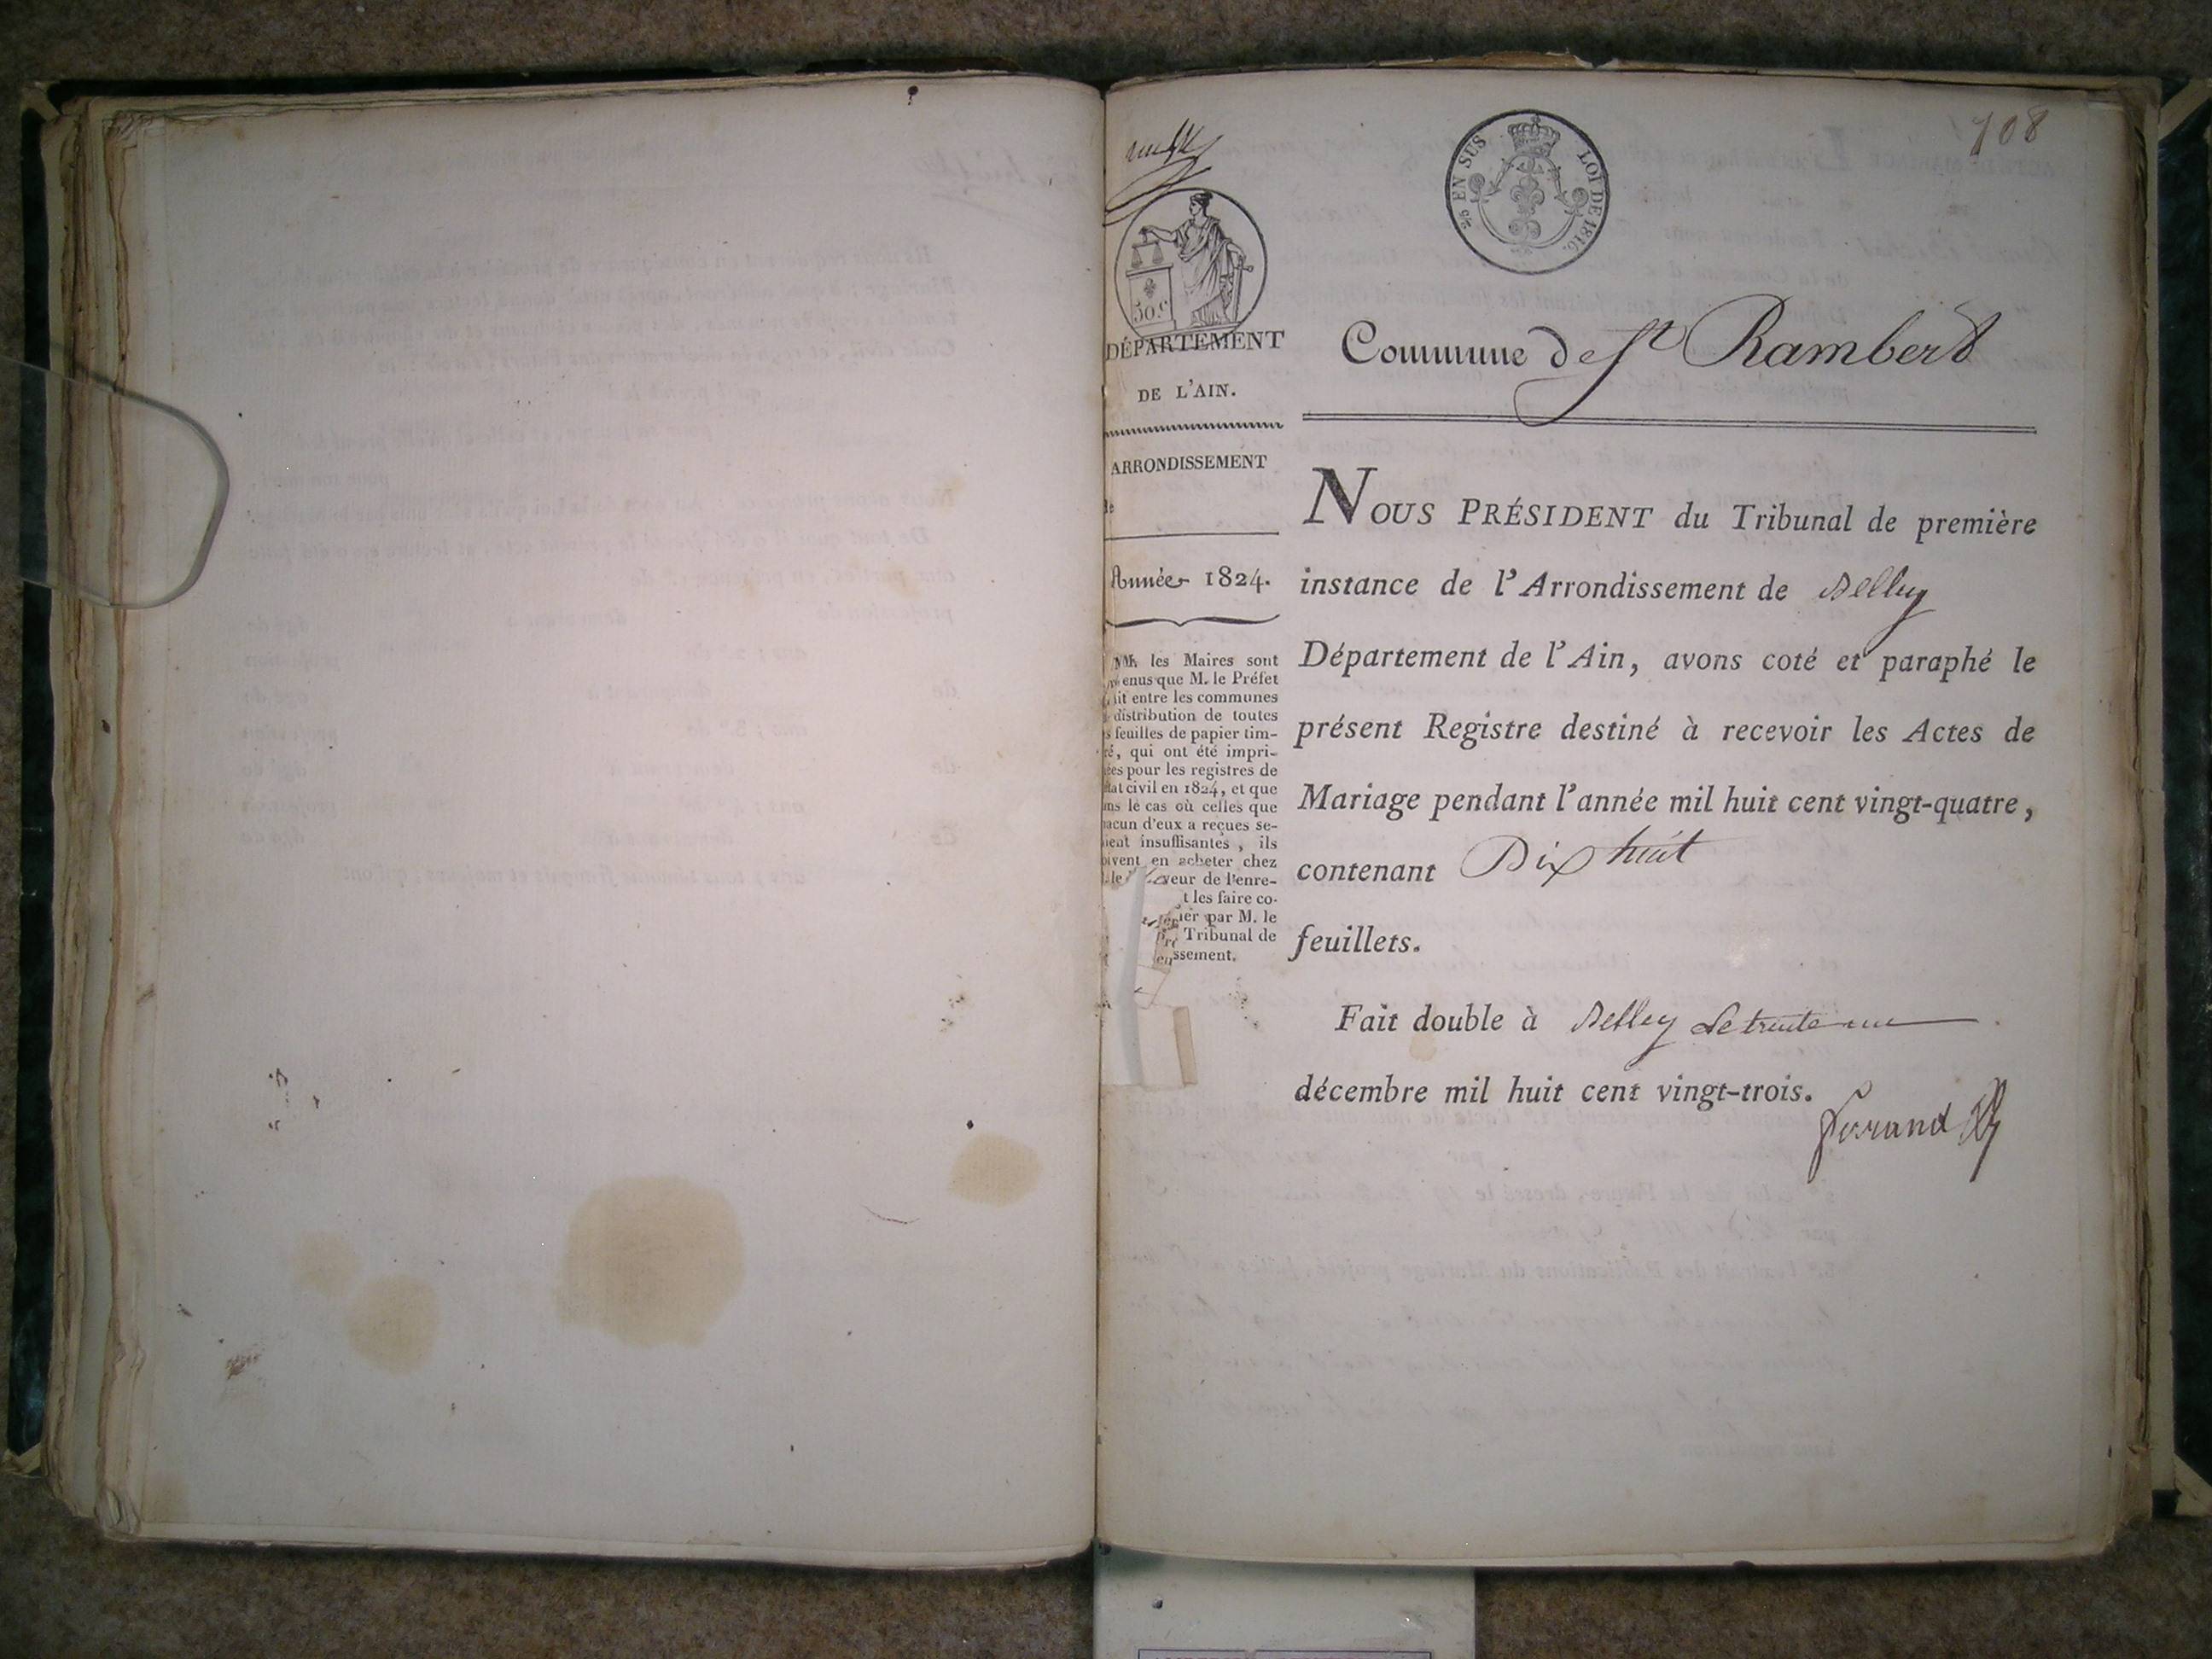 108
% EN SUS LOI DE 1816.
50.C
DÉPARTEMENT
DE L'AIN.
ARRONDISSEMENT
de
Année 1824.
MM. les Maires sont
enus que M. le Préfet
ait entre les communes
distribution de toutes
s feuilles de papier tim-
ré, qui ont été impri-
ées pour les registres de
état civil en 1824, et que
ans le cas où celles que
hacun d'eux a reçues se-
ient insuffisantes, ils
oivent en acheter chez
le veur de l'enre-
t les faire co-
ier par M. le
Tribunal de
ssement.
Commune de St Rambert
NOUS PRÉSIDENT du Tribunal de première
instance de l'Arrondissement de Belley
Département de l'Ain, avons coté et paraphé le
présent Registre destiné à recevoir les Actes de
Mariage pendant l'année mil huit cent vingt-quatre,
contenant Dix huit
feuillets.
Fait double à Belley le trente un
décembre mil huit cent vingt-trois.